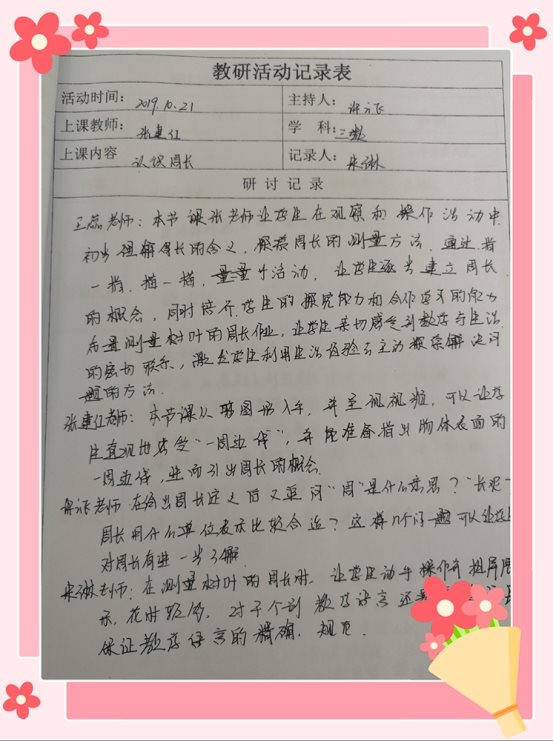 教研活动记录表
活动时间: 2019.10.21 主持人:
上课教师: 张建红 学 科: 三数
上课内容 认识周长 记录人: 宋琳
研 讨 记 录
王磊老师: 本节课张老师让学生在观察和操作活动中
初步理解周长的含义, 探索周长的测量方法. 通过指
一指. 描一描. 量量等活动. 让学生逐步建立周长
的概念, 同时培养学生的探究能力和合作交流的能力
后量测量树叶的周长作业, 让学生亲切感受到数学与生活
的密切联系, 激发学生利用生活经验去主动探索解决问
题的方法.
张建红老师: 本节课从图形入手, 并 视频, 可以让学
生直观地感受"一周边线", 并能准备指出物体表面的
一周边线, 进而引出周长的概念.
老师 在给出周长定义后又追问"周"是什么意思? "长
周长用什么单位表示比较合适? 这样几个问题可以让学生
对周长有进一步了解.
宋琳老师: 在测量树叶的周长时. 让学生动手操作
示, 花时 . 对于个别数学语言还
保证数学语言的精确. 规范.